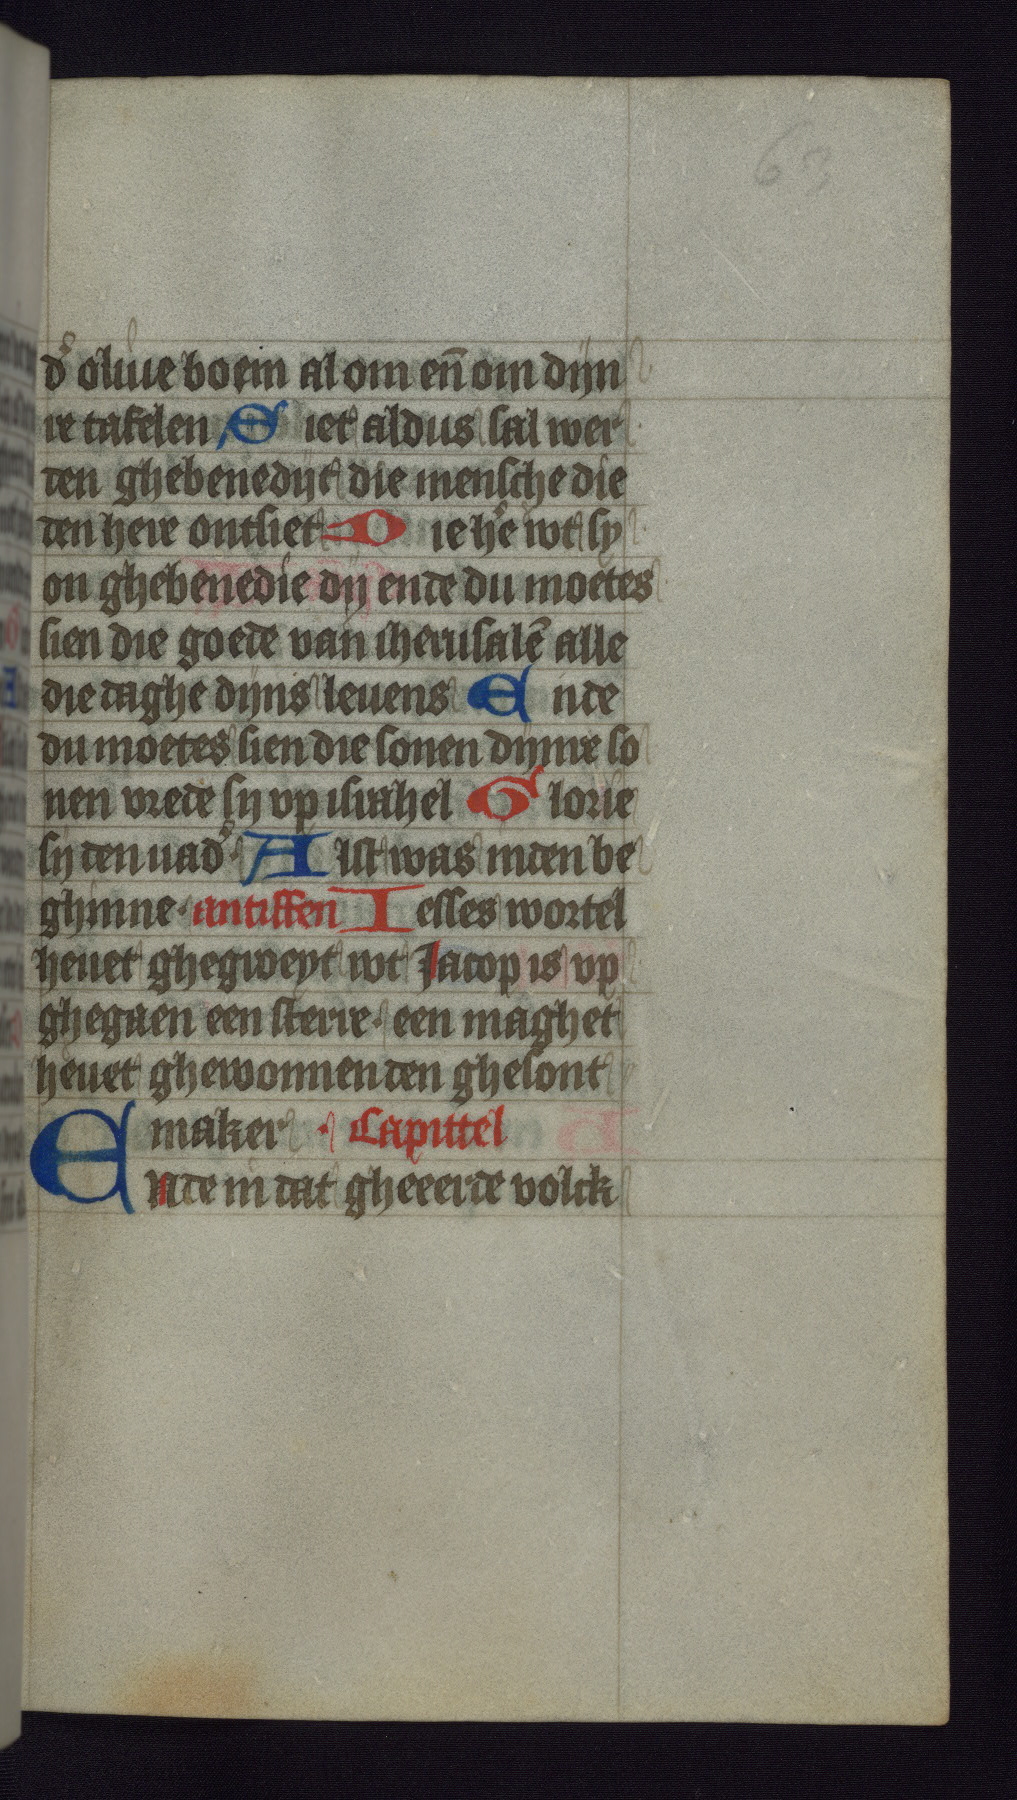 63
d᷑ oliue boem al om en̄ om dijn
re tafelen Siet aldus sal wer
den ghebenedijt die mensche die
den here ontsiet Die he᷑ wt sy
on ghebenedie dij ende du moetes
sien die goede van iherusalē alle
die daghe dijns leuens Ende
du moetes sien die sonen dijnre so
nen vrede sij vp israhel Glorie
sij den uad᷑· Alst was inden be
ghinne· antiffen Iesses wortel
heuet ghegweyt wt Jacop is vp
ghegaen een sterre· een maghet
heuet ghewonnen den ghesont
maker· Capittel
Ende in dat gheeerde volck